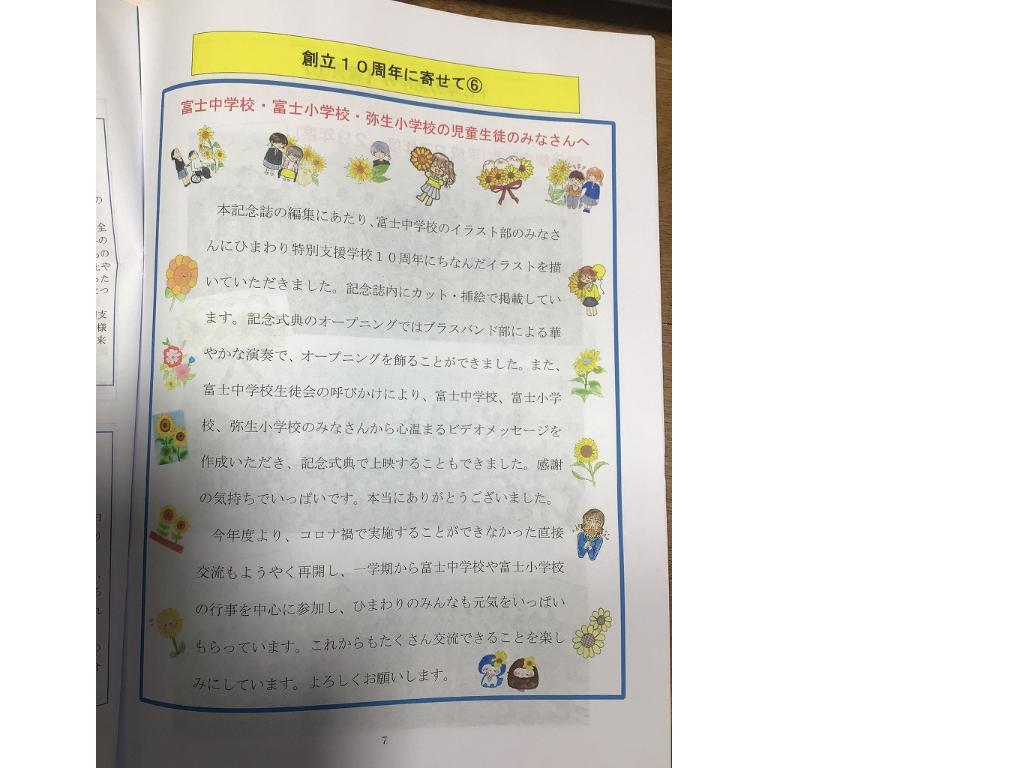 創立１０周年に寄せて⑥
富士中学校・富士小学校・弥生小学校の児童生徒のみなさんへ
本記念誌の編集にあたり、富士中学校のイラスト部のみなさ
んにひまわり特別支援学校１０周年にちなんだイラストを描
いていただきました。記念誌内にカット・挿絵で掲載してい
ます。記念式典のオープニングではブラスバンド部による華
やかな演奏で、オープニングを飾ることができました。また、
富士中学校生徒会の呼びかけにより、富士中学校、富士小学
校、弥生小学校のみなさんから心温まるビデオメッセージを
作成いただき、記念式典で上映することもできました。感謝
の気持ちでいっぱいです。本当にありがとうございました。
今年度より、コロナ禍で実施することができなかった直接
交流もようやく再開し、一学期から富士中学校や富士小学校
の行事を中心に参加し、ひまわりのみんなも元気をいっぱい
もらっています。これからもたくさん交流できることを楽し
みにしています。よろしくお願いします。
7